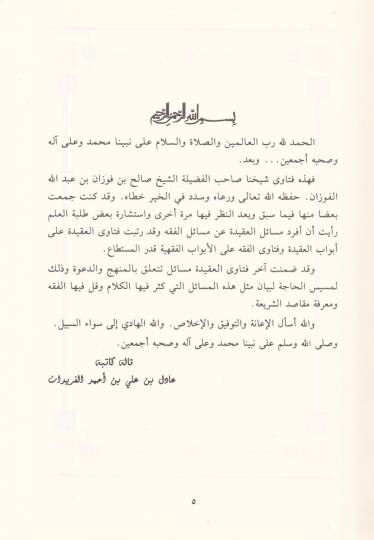 بسم الله الرحمن الرحيم
الحمد لله رب العالمين والصلاة والسلام على نبينا محمد وعلى آله
وصحبه أجمعين... وبعد.
فهذه فتاوى شيخنا صاحب الفضيلة الشيخ صالح بن فوزان بن عبد الله
الفوزان. حفظه الله تعالى ورعاه وسدد في الخير خطاه. وقد كنت جمعت
بعضا منها فيما سبق وبعد النظر فيها مرة أخرى واستشارة بعض طلبة العلم
رأيت أن أفرد مسائل العقيدة عن مسائل الفقه وقد رتبت فتاوى العقيدة على
أبواب العقيدة وفتاوى الفقه على الأبواب الفقهية قدر المستطاع.
وقد ضمنت آخر فتاوى العقيدة مسائل تتعلق بالمنهج والدعوة وذلك
لمسيس الحاجة لبيان مثل هذه المسائل التي كثر فيها الكلام وقل فيها الفقه
ومعرفة مقاصد الشريعة.
والله أسأل الإعانة والتوفيق والإخلاص. والله الهادي إلى سواء السبيل.
وصلى الله وسلم على نبينا محمد وعلى آله وصحبه أجمعين.
قاله كاتبه
عادل بن علي بن أحمد الفريدان
٥